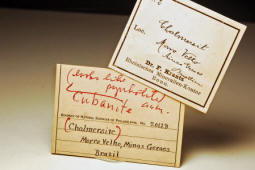 Chalmersit
Loc. Morro Velho
Minas Geraes
Brasilien
Dr. F. Krantz
Rheinisches Mineralien-Kontor
Bonn.
(looks like
pyrrhotite)
Cubanite
ACADEMY OF NATURAL SCIENCES OF PHILADELPHIA, No.
(Chalmersite)
Morro Velho, Minas Geraes
Brazil